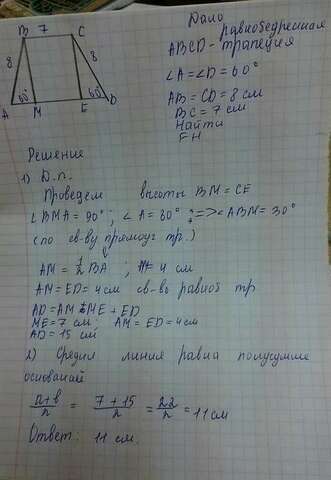 B 7 C
8 8
60° 60°
A M E D
Дано
равнобедренная
ABCD - трапеция
∠A = ∠D = 60°
AB = CD = 8 см
BC = 7 см
Найти
FH
Решение
1) Д.п.
Проведем высоты BM = CE
∠BMA = 90°; ∠A = 60° => ∠ABM = 30°
(по св-ву прямоуг тр.)
AM = 1/2 BA; = 4 см
AM = ED = 4 см св-во равной тр
AD = AM + ME + ED
ME = 7 см; AM = ED = 4 см
AD = 15 см
2) Средняя линия равна полусумме
оснований
a+b/2 = 7+15/2 = 22/2 = 11 см
Ответ: 11 см.